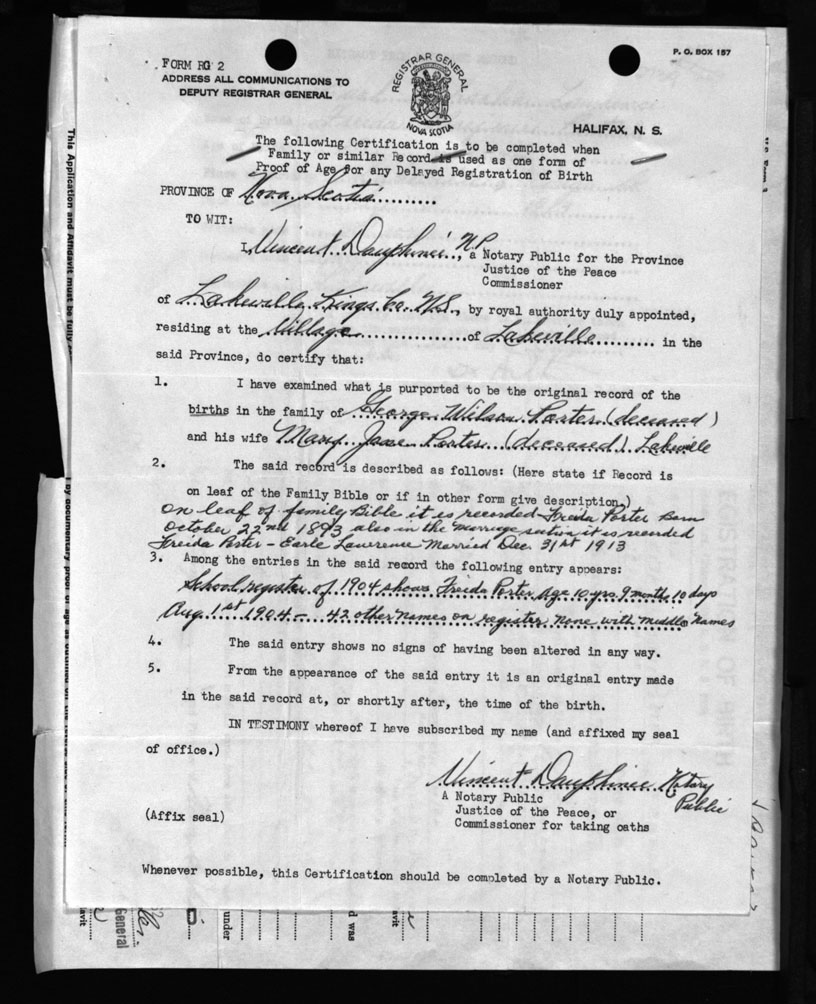 P. O. BOX 157
FORM RG 2
ADDRESS ALL COMMUNICATIONS TO
DEPUTY REGISTRAR GENERAL
REGISTRAR GENERAL
NOVA SCOTIA
HALIFAX, N. S.
The following Certification is to be completed when
Family or similar Record is used as one form of
Proof of Age for any Delayed Registration of Birth
PROVINCE OF Nova Scotia
TO WIT:
I, Vincent Dauphinee, N.P., a Notary Public for the Province
Justice of the Peace
Commissioner
of Lakeville Kings Co. N.S., by royal authority duly appointed,
residing at the Village of Lakeville in the
said Province, do certify that:
1. I have examined what is purported to be the original record of the
births in the family of George Wilson Porter (deceased)
and his wife Mary Jane Porter (deceased) Lakeville
2. The said record is described as follows: (Here state if Record is
on leaf of the Family Bible or if in other form give description.)
On leaf of family Bible it is recorded Freida Porter Born
October 22nd 1893 also in the marriage section it is recorded
Freida Porter - Earle Lawrence Married Dec. 31st 1913
3. Among the entries in the said record the following entry appears:
School register of 1904 shows Freida Porter age 10 yrs 9 months 10 days
Aug 1st 1904 - 42 other names on register none with middle names
4. The said entry shows no signs of having been altered in any way.
5. From the appearance of the said entry it is an original entry made
in the said record at, or shortly after, the time of the birth.
IN TESTIMONY whereof I have subscribed my name (and affixed my seal
of office.)
Vincent Dauphinee Notary
Public
A Notary Public
Justice of the Peace, or
Commissioner for taking oaths
(Affix seal)
Whenever possible, this Certification should be completed by a Notary Public.
This Application and Affidavit must be fully
by documentary proof of age as outlined on
General
under
d was